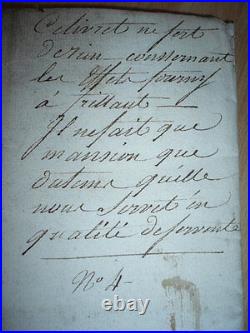 Ce livret ne sert
de rien conssernant
les Effets fourny
à frillaut —
Il ne fait que
mansion que
du tems quelle
nous servet en
qualité de servente
No 4